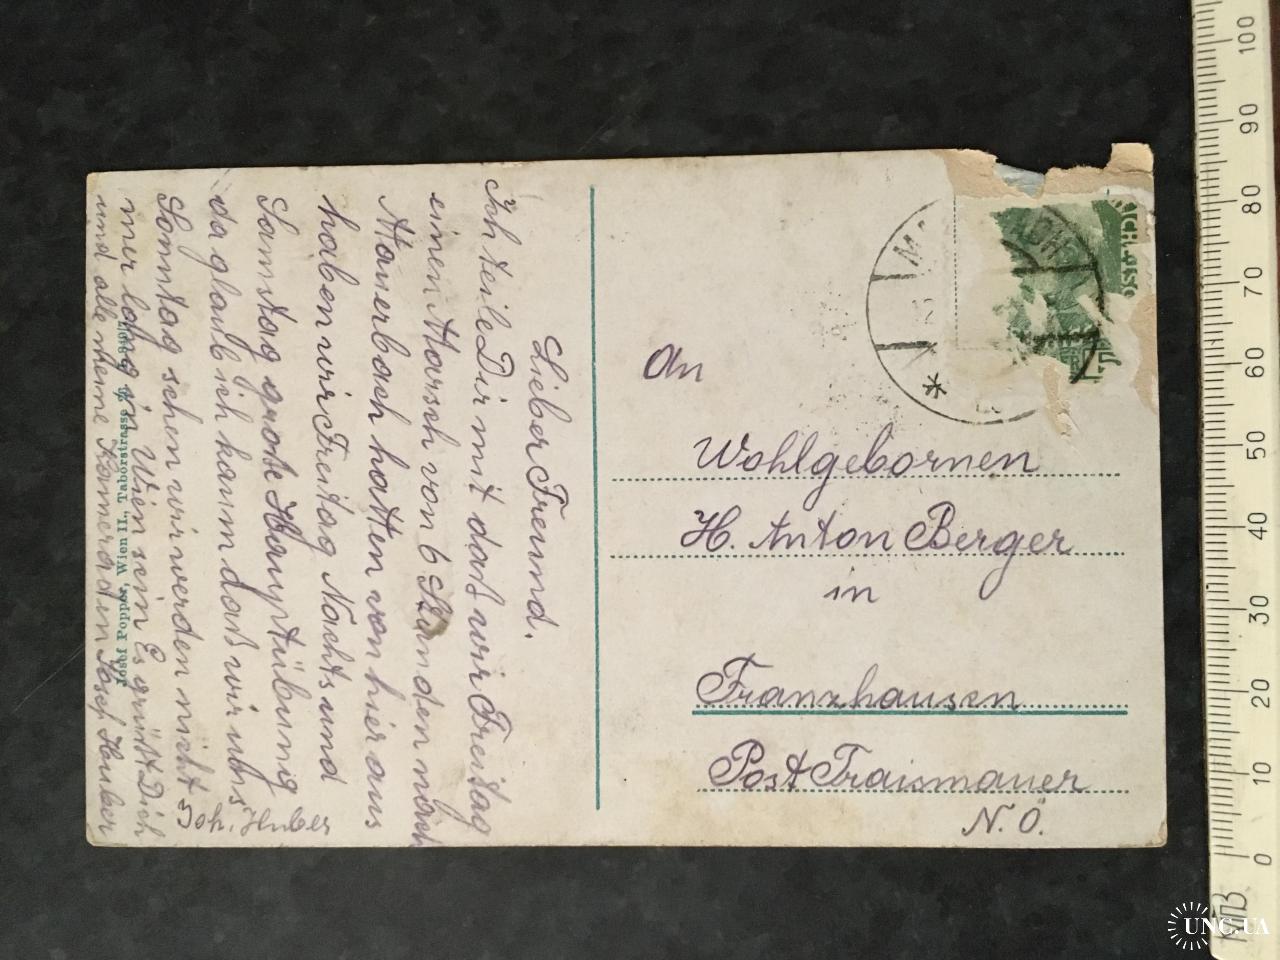 Lieber Freund.
Ich teile Dir mit daß wir Freitag
einen Marsch von 6 Stunden nach
Mauerbach hatten von hier aus
haben wir Freitag Nachts und
Samstag große Hauptübung
da glaub ich kaum daß wir uns
Sonntag sehen wir werden nicht
mer lang in Wien sein Es grüßt Dich
und alle meine Kameraden Josef Huber
Joh. Huber
Josef Popper, Wien II., Taborstrasse
An
Wohlgebornen
H. Anton Berger
in
Franzhausen
Post Traismauer
N. Ö.
100
90
80
70
60
50
40
30
20
10
0
UNC.UA